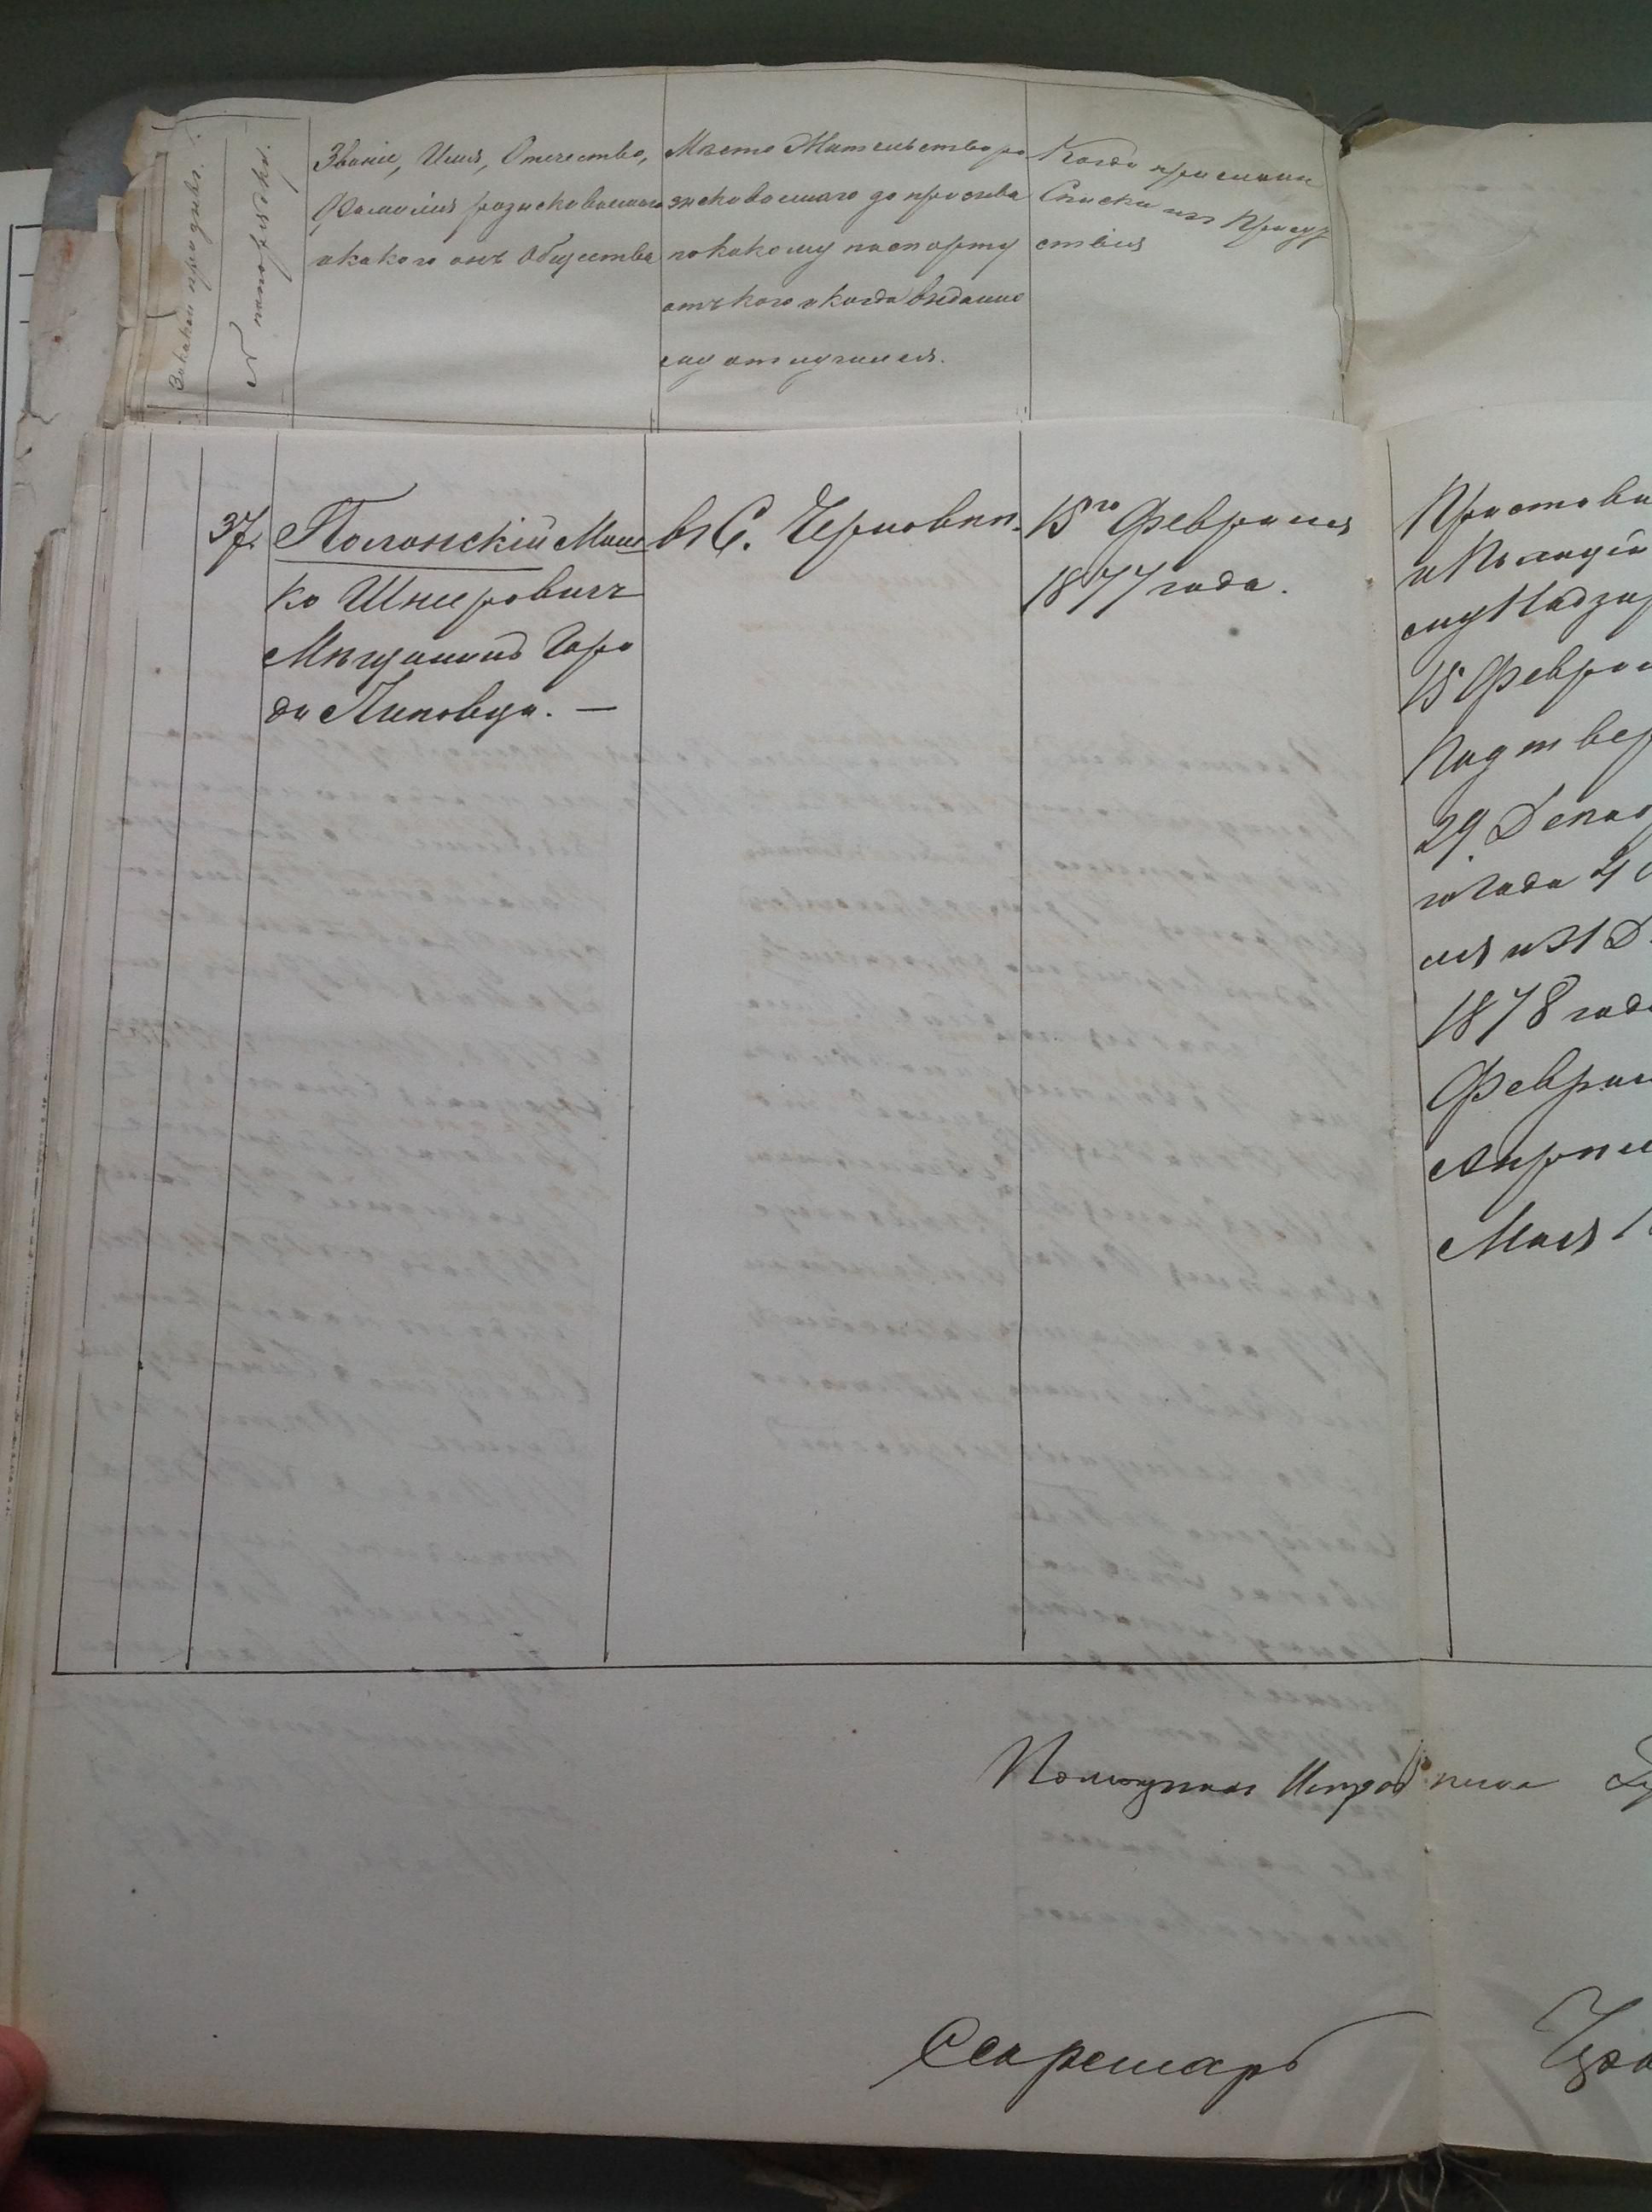 № по порядку.
Званіе, Имя, Отечество,
Фамилія розисковаемаго
и какого онъ Общества
Место Жительства ро
зисковаемаго до призыва
по какому паспорту
отъ кого и когда выданно
му отлучился.
Когда присланы
Списки изъ Присут
ствія
37.
Полонскій Мош
ко Шнеровичъ
Мѣщанинъ Горо
да Липовца. —
въ С. Черновкѣ.
15го Февраля
1877 года.
Пристави
и Полицій
му Надзир
15 Феврал
Подтвер
29 Декаб
го года 4
ля и 31 Д
1878 года
Феврал
Апреля
Мая 1
Помощникъ Исправника
Секретарь